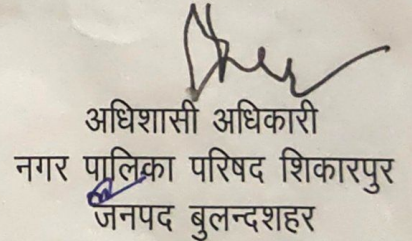 अधिशासी अधिकारी
नगर पालिका परिषद शिकारपुर
जनपद बुलन्दशहर